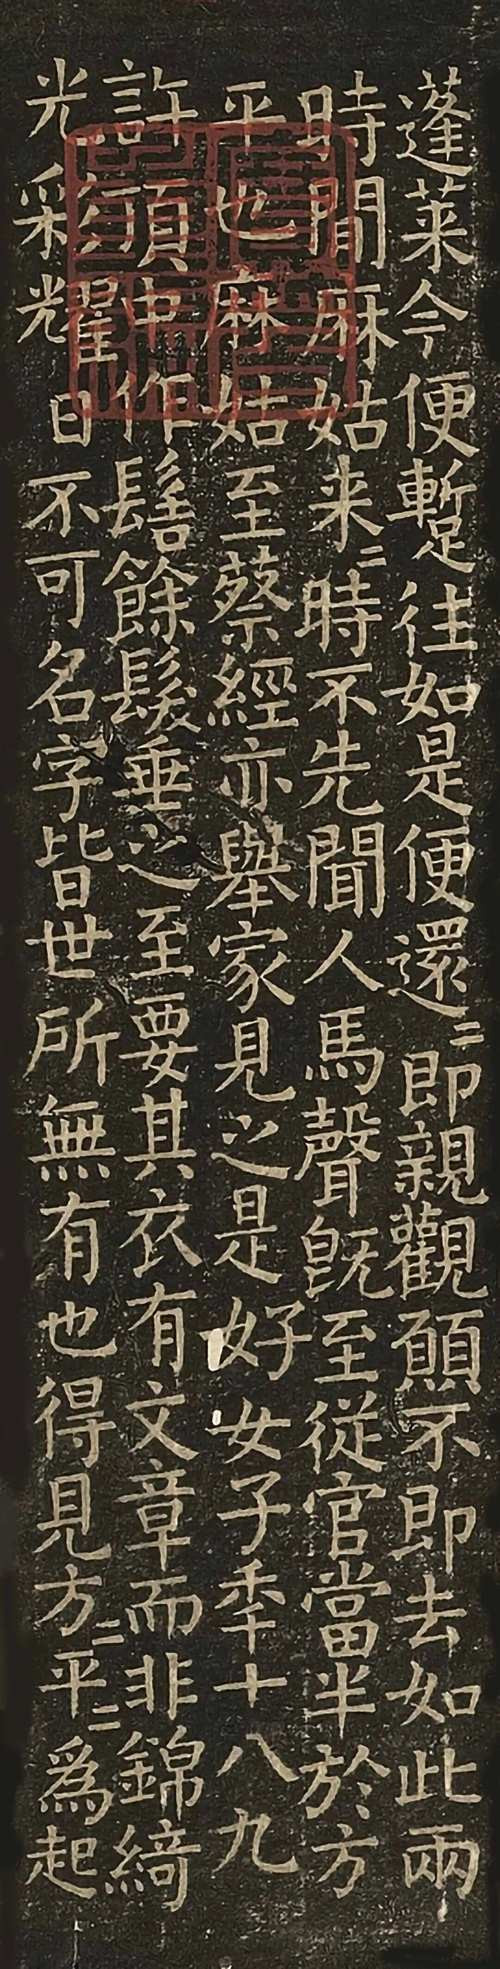 蓬萊今便蹔往如是便還〻即親觀願不即去如此兩
時間麻姑来〻時不先聞人馬聲既至從官當半於方
平也麻姑至蔡經亦舉家見之是好女子秊十八九
許頂中作髻餘髮垂之至要其衣有文章而非錦綺
光彩耀日不可名字皆世所無有也得見方〻平〻爲起